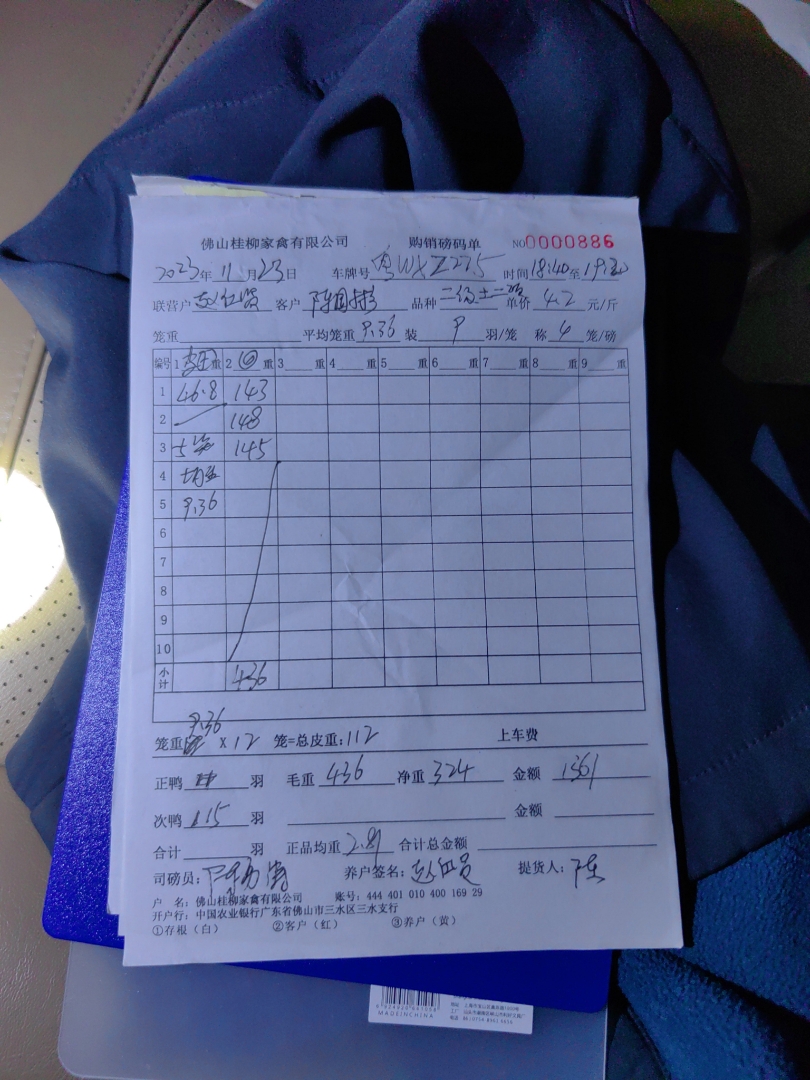 佛山桂柳家禽有限公司 购销磅码单 NO0000886
2023年11月23日 车牌号 粤WXZ275 时间18:40至19:20
联营户 客户 陈国彬 品种 单价 4.2 元/斤
笼重 平均笼重 9.36 装 9 羽/笼 称 4 笼/磅
编号 1 重 2 重 3 重 4 重 5 重 6 重 7 重 8 重 9 重
1 46.8 143
2 148
3 5笼 145
4
5 9.36
6
7
8
9
10
小计 436
9.36
笼重 X 12 笼=总皮重:112 上车费
正鸭 羽 毛重 436 净重 324 金额 1361
次鸭 115 羽 金额
合计 羽 正品均重 2.81 合计总金额
司磅员: 养户签名: 提货人: 陈
户 名: 佛山桂柳家禽有限公司 账号: 444 401 010 400 169 29
开户行: 中国农业银行广东省佛山市三水区三水支行
①存根(白) ②客户(红) ③养户(黄)
MADE IN CHINA